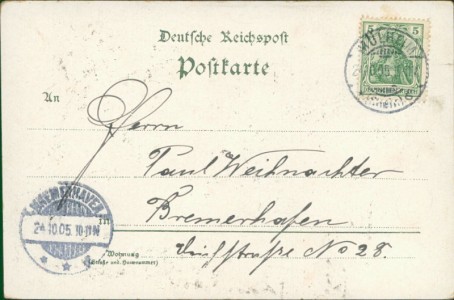 Deutsche Reichspost
Postkarte
5 5
MÜLHEIM
An
Herrn
Paul Weihnachter
BREMERHAVEN
24.10.05. 10-11 N
in
Bremerhafen
straße No 28.
Wohnung
(Straße und Hausnummer)